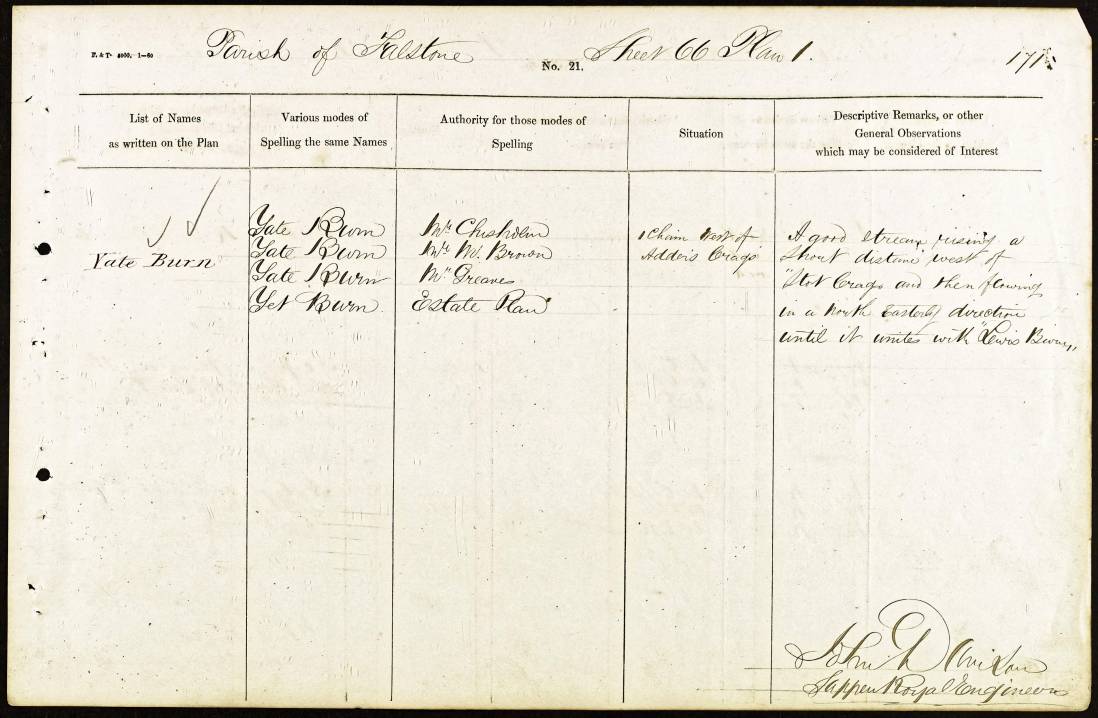 P. & T. 4000. 1-60
Parish of Falstone
No. 21.
Sheet 66 Plan 1.
171
List of Names
as written on the Plan
Various modes of
Spelling the same Names
Authority for those modes of
Spelling
Situation
Descriptive Remarks, or other
General Observations
which may be considered of Interest
Yate Burn
Yate Burn
Yate Burn
Yate Burn
Yet Burn
Mr. Chisholm
Mr. M. Brown
Mr. Greaves
Estate Plan
1 Chain West of
Adders Crags
A good stream rising a
Short distance west of
"Stot Crags and then flowing
in a North Easterly direction
until it unites with "Lewis Burn,,
John
Sapper Royal Engineers